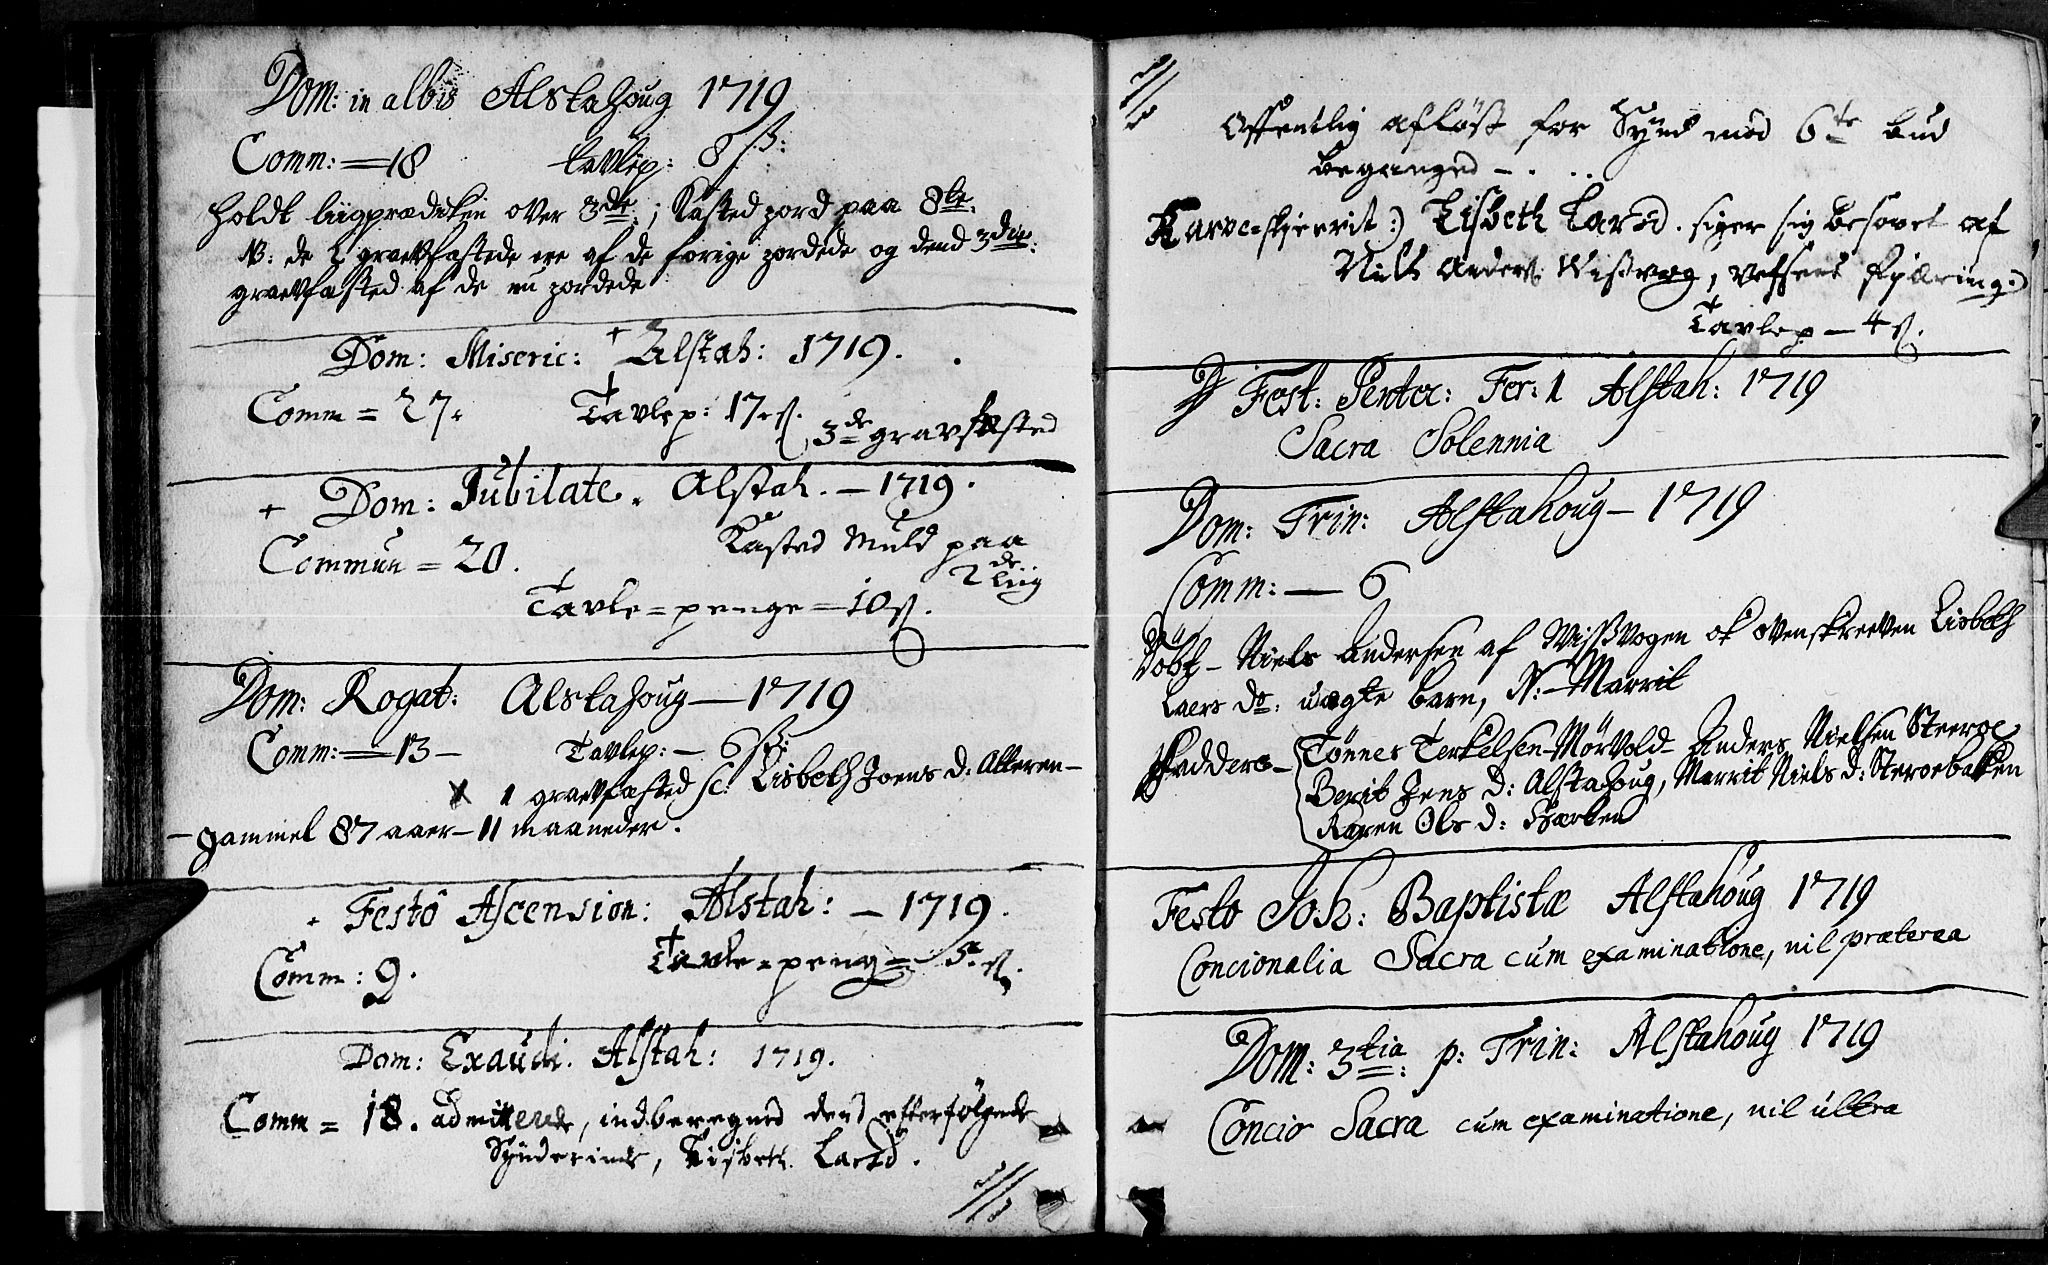 Dom: in albis Alstahoug 1719
Comm: = 18 tavlep: 8 ß:
Holdt liigprædiken over 3de; Kasted jord paa 8te.
NB: de 2 graefæstede ere af de forige jordede og dend 3die:
graefæsted af de nu jordede
Dom: Miseric: Alstah: 1719.
Comm = 27. Tavlep: 17 ß. 3de gravfæsted
+ Dom: Jubilate. Alstah. – 1719.
Commun = 20. Kasted Muld paa
2de Liig
Tavle=penge = 10 ß.
Dom: Rogat: Alstahoug – 1719
Comm: = 13 – Tavlep: – 6 ß:
x 1 graefæsted sc: Lisbeth Joens d: Alteren–
– gammel 87 aaer – 11 maaneder.
Festo Ascension: Alstah: – 1719.
Comm: 9. Tavle=peng = 5 ß.
Dom: Exaudi. Alstah: 1719.
Comm = 18. admitterede, indberegned dend efterfølgende
Synderinde, Lisbeth Larsd.
Offentlig afløst for Synd mod 6te bud
begangen – . . .
Lisbeth Larsd. siger sig besovet af
Niels Anders: Wisvog, vefsens fjæring:)
Tavlep – 4 ß.
Fest: Pentec: Fer: 1 Alstah: 1719
Sacra Solennia
Dom: Trin: Alstahoug – 1719
Comm: — 6
Döbt – Niels Andersen af Wissvogen ok ovenskreven Lisbeth
Laers do: uægte barn, N: – Marrit
Fadders – Tønnes Terkelsen – Mörvold – Anders Nielsen Steeroe
Berit Jens d: Alstahoug, Marrit Niels d: Steroebakken
Karen Ols d:
Festo Joh: Baptistæ Alstahoug 1719
Concionalia Sacra cum examinatione, nil præterea
Dom: 3tia: p: Trin: Alstahoug 1719
Concio Sacra cum examinatione, nil ultra